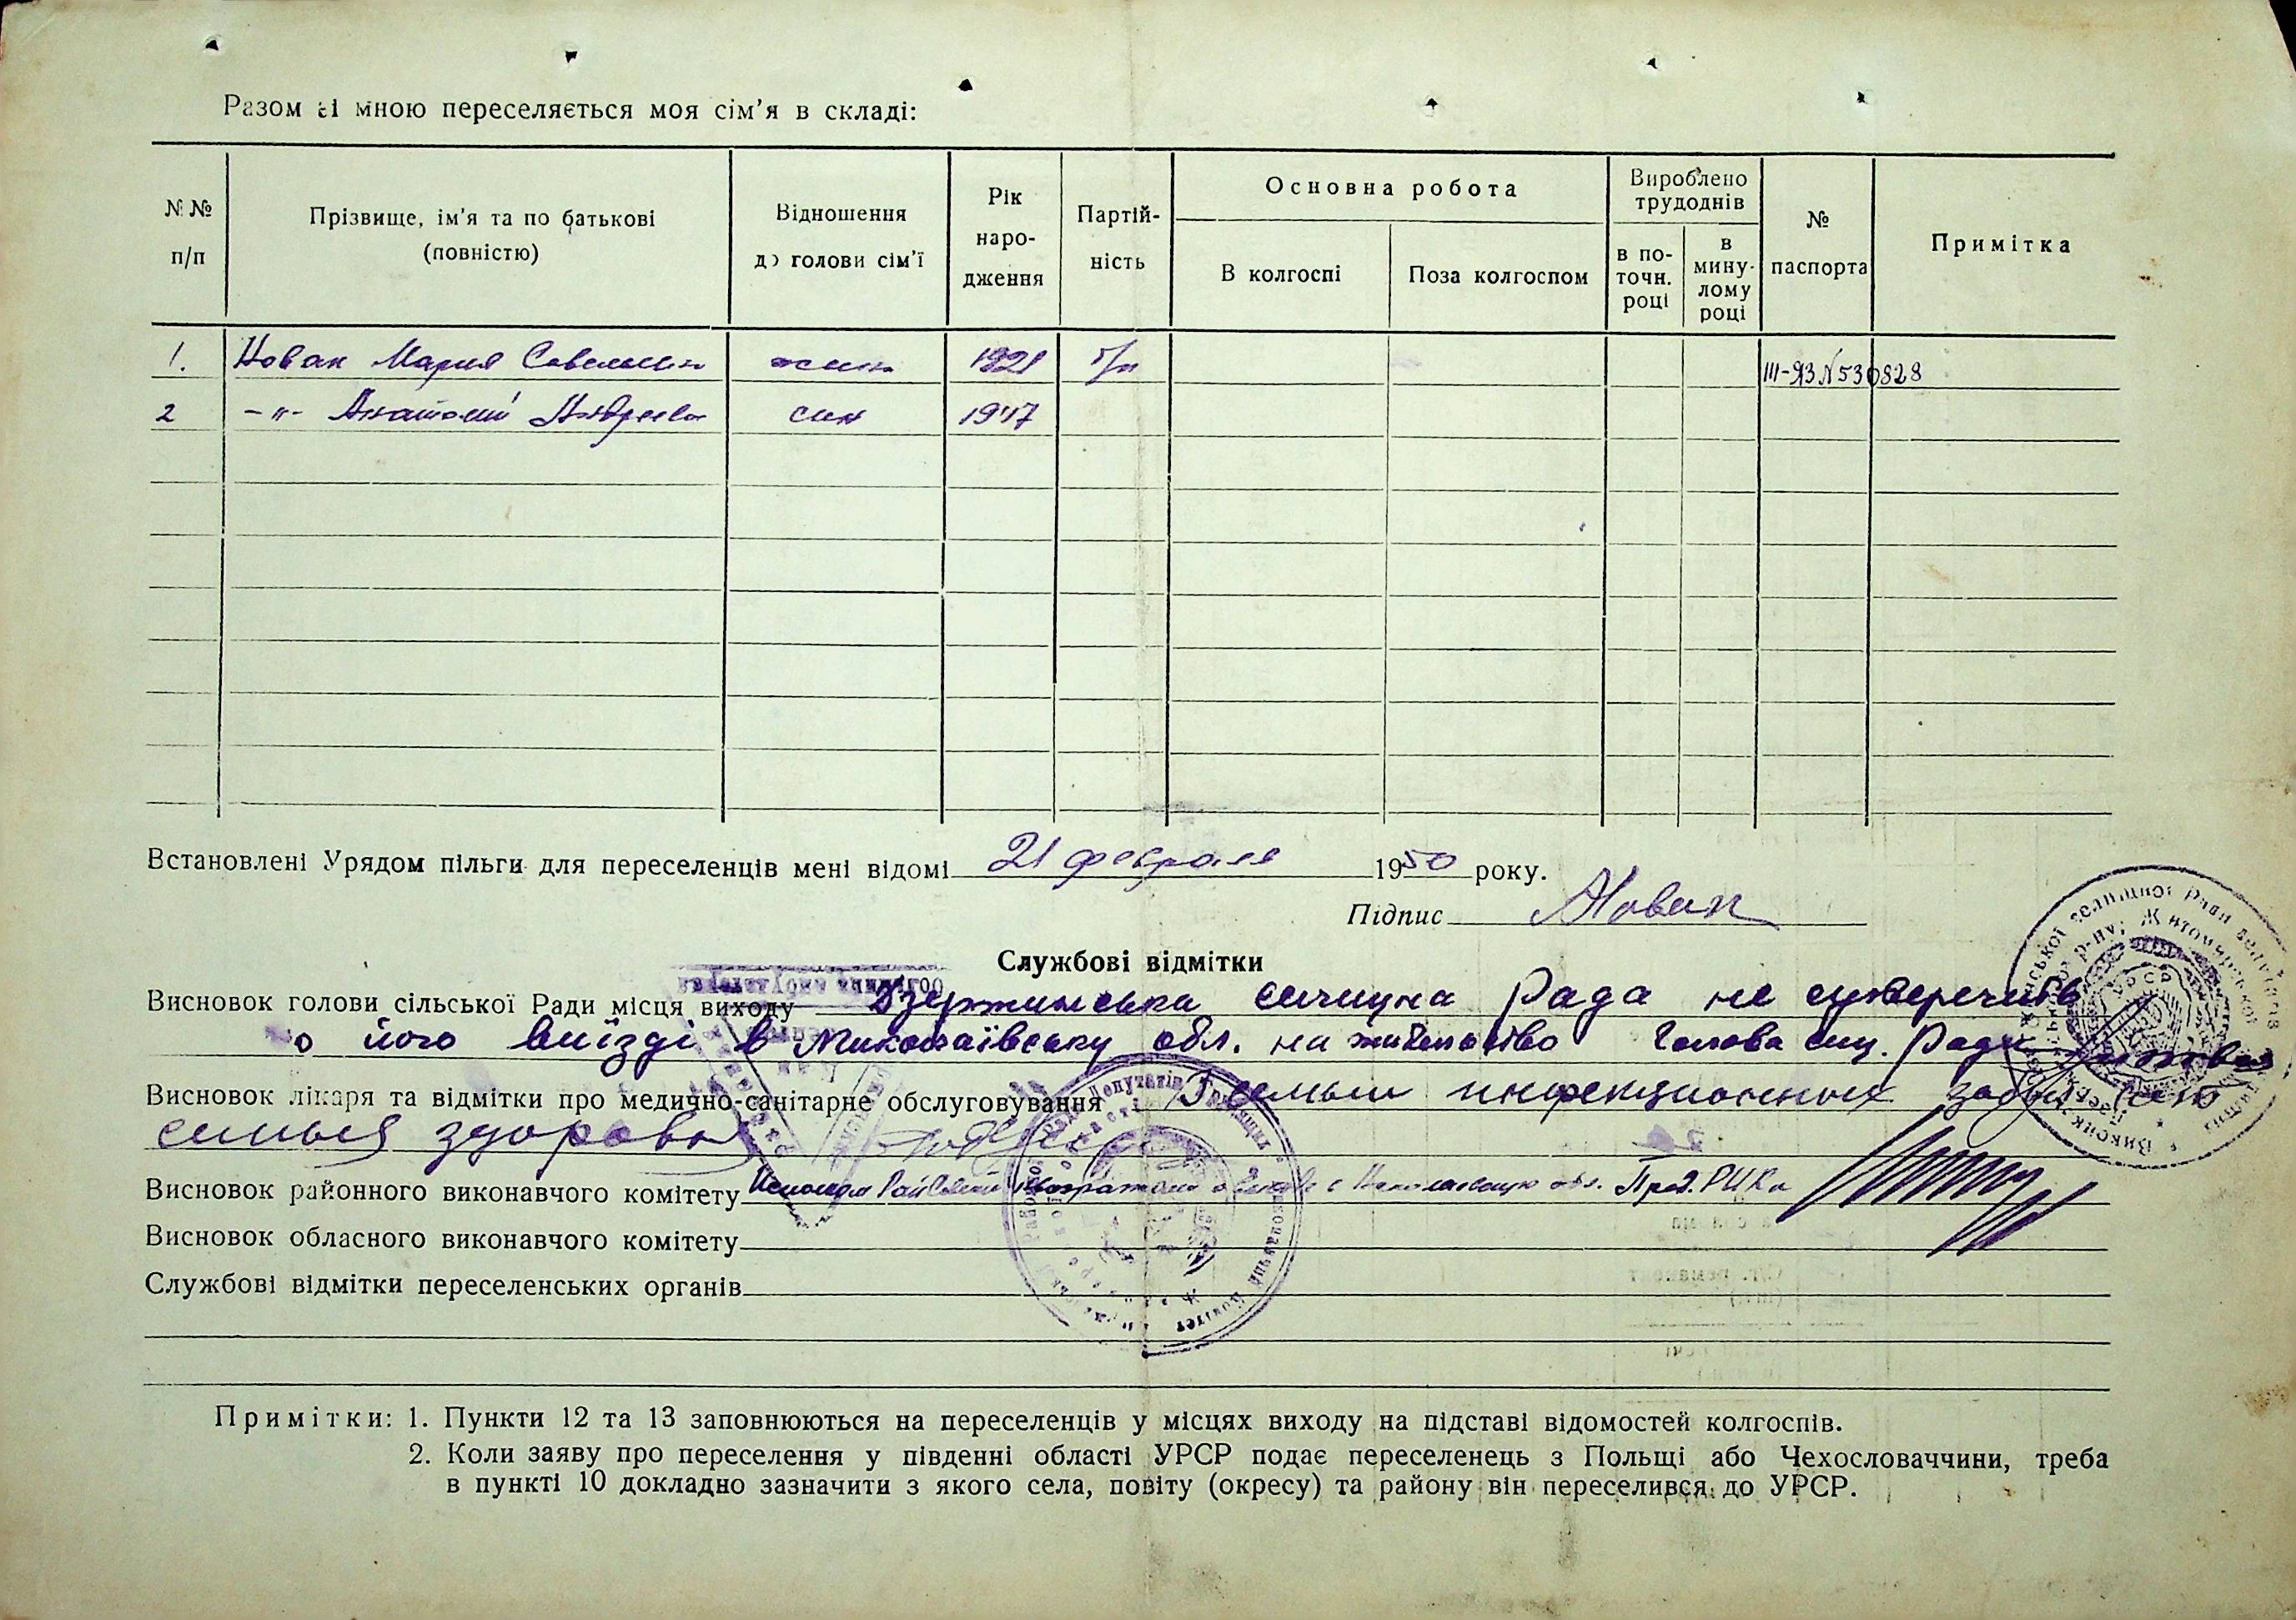 Разом зі мною переселяється моя сім'я в складі:
№№ п/п
Прізвище, ім'я та по батькові (повністю)
Відношення до голови сім'ї
Рік народження
Партійність
Основна робота
В колгоспі
Поза колгоспом
Вироблено трудоднів
в поточн. році
в минулому році
№ паспорта
Примітка
1. Новак Мария 1921 б/п III-ЯЗ №530828
2 -"- Анатолий син 1947
Встановлені Урядом пільги для переселенців мені відомі 21 февраля 1950 року.
Підпис Новак
Службові відмітки
Висновок голови сільської Ради місця виходу Дзержинська селищна Рада не
о його виїзді в Миколаївську обл. на жительство Голова сищ. Ради
Висновок лікаря та відмітки про медично-санітарне обслуговування В семьи инфекционных
семья здорова
Висновок районного виконавчого комітету Николаевскую обл. Пред. РИКа
Висновок обласного виконавчого комітету
Службові відмітки переселенських органів
Примітки: 1. Пункти 12 та 13 заповнюються на переселенців у місцях виходу на підставі відомостей колгоспів.
2. Коли заяву про переселення у південні області УРСР подає переселенець з Польщі або Чехословаччини, треба
в пункті 10 докладно зазначити з якого села, повіту (окресу) та району він переселився до УРСР.